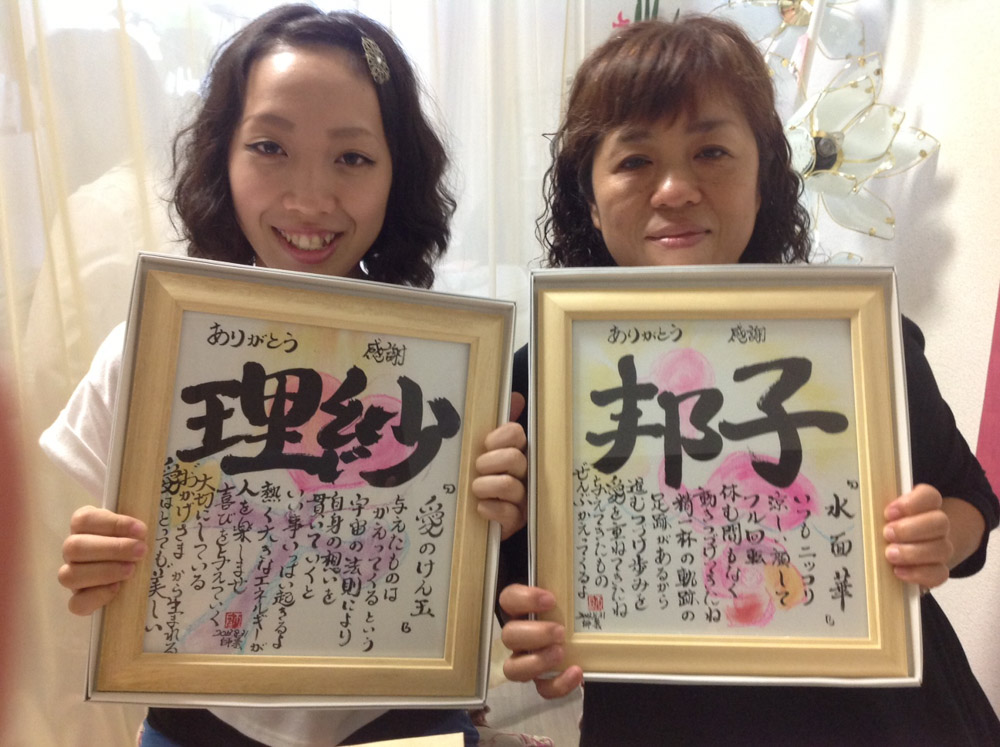 ありがとう
感謝
理紗
『愛のけん玉』
与えたものは
かえってくるという
宇宙の法則により
自身の想いを
貫いていくと
いい事いっぱい起きるよ
熱く大きなエネルギーが
人を楽しませ
喜びを与えていく
大切にしている
"おかげさま"から生まれる
愛はとっても美しい
ありがとう
感謝
邦子
『水面華』
いつもニッコリ
涼しい顔して
フル回転
休む間もなく
動きつづけてきたね
精一杯の軌跡の
足跡があるから
つづけ歩みを
愛を重ねてきたね
与えてきたもの
ぜんぶかえってくるよ